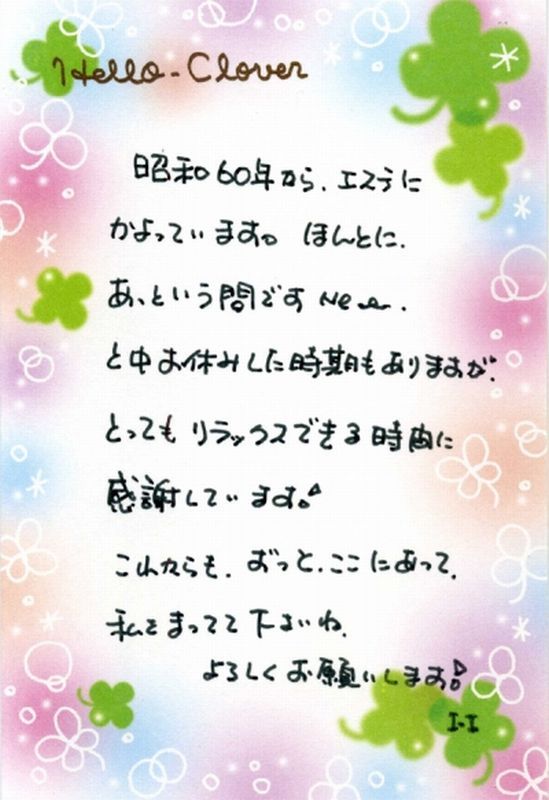 Hello-Clover
昭和60年から、エステに
かよっています。ほんとに、
あっという間ですNe〜、
と中お休みした時期もありますが、
とってもリラックスできる時間に
感謝しています。
これからも、ずっと、ここにあって、
私をまってて下さいね、
よろしくお願いします。
I・I